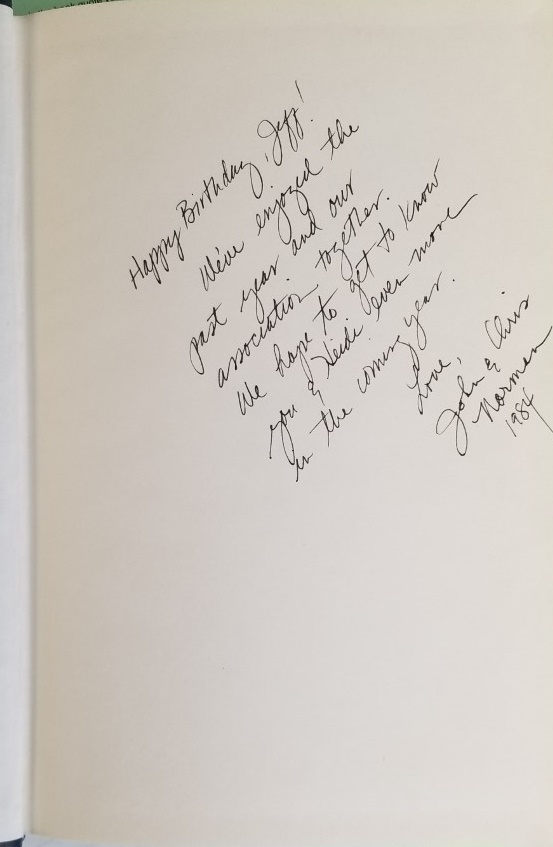 Happy Birthday, Jeff!
We've enjoyed the
past year and our
association together.
We hope to get to know
you & Heidi even more
in the coming year.
Love,
John & Chris
Norman
1984